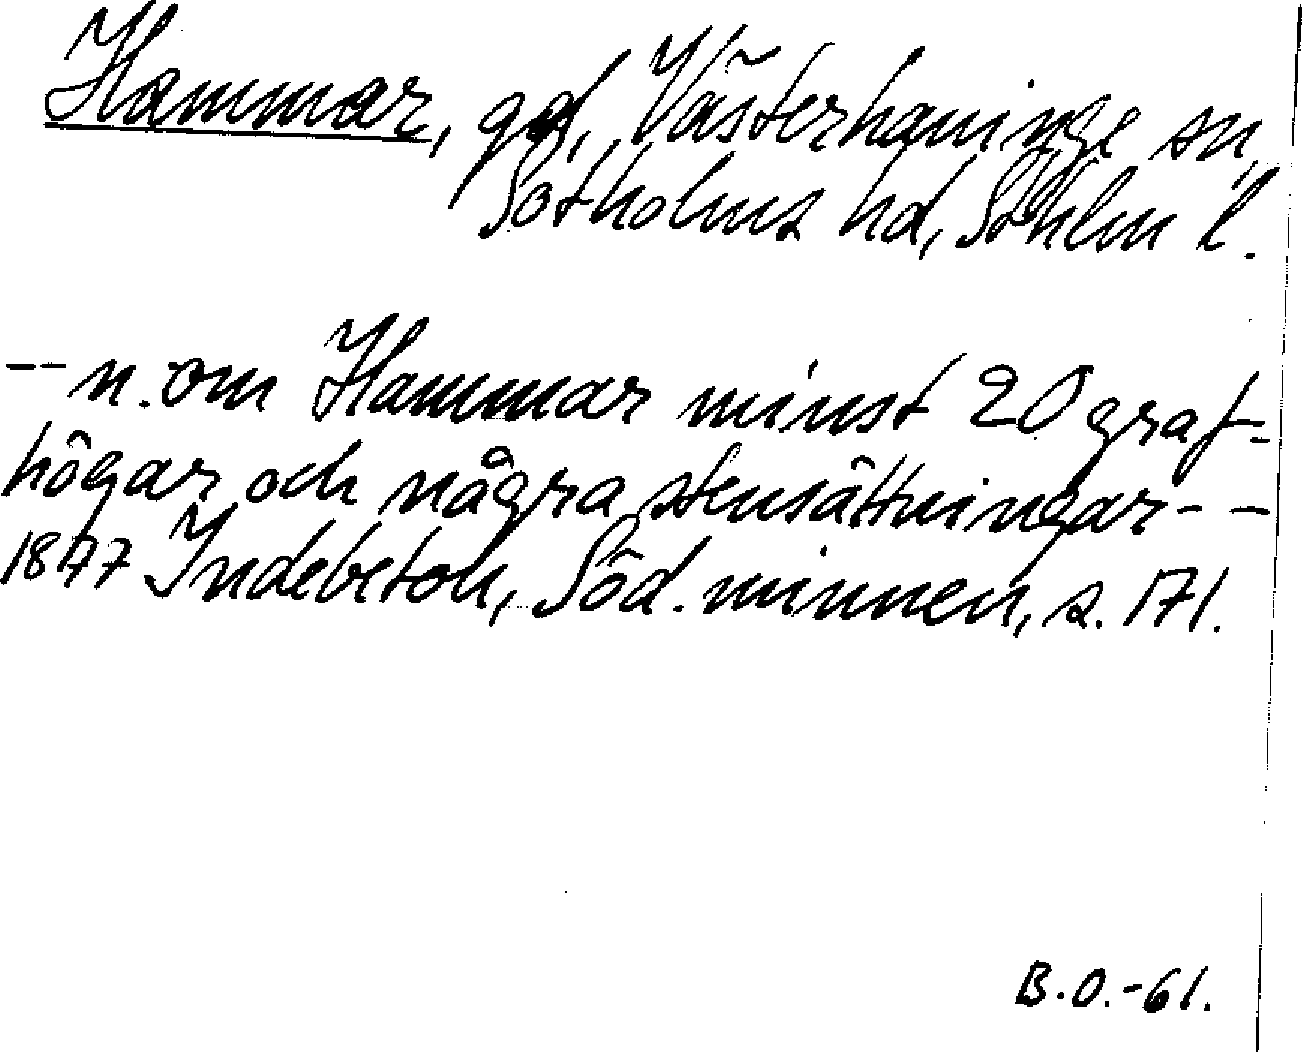 Hammar, gd, Västerhaninge sn,
Sotholms hd, Sthlm l.
-- n. om Hammar minst 20 graf-
högar och några stensättningar--
1877 Indebetou, Söd. minnen, s. 171.
B.O.-61.